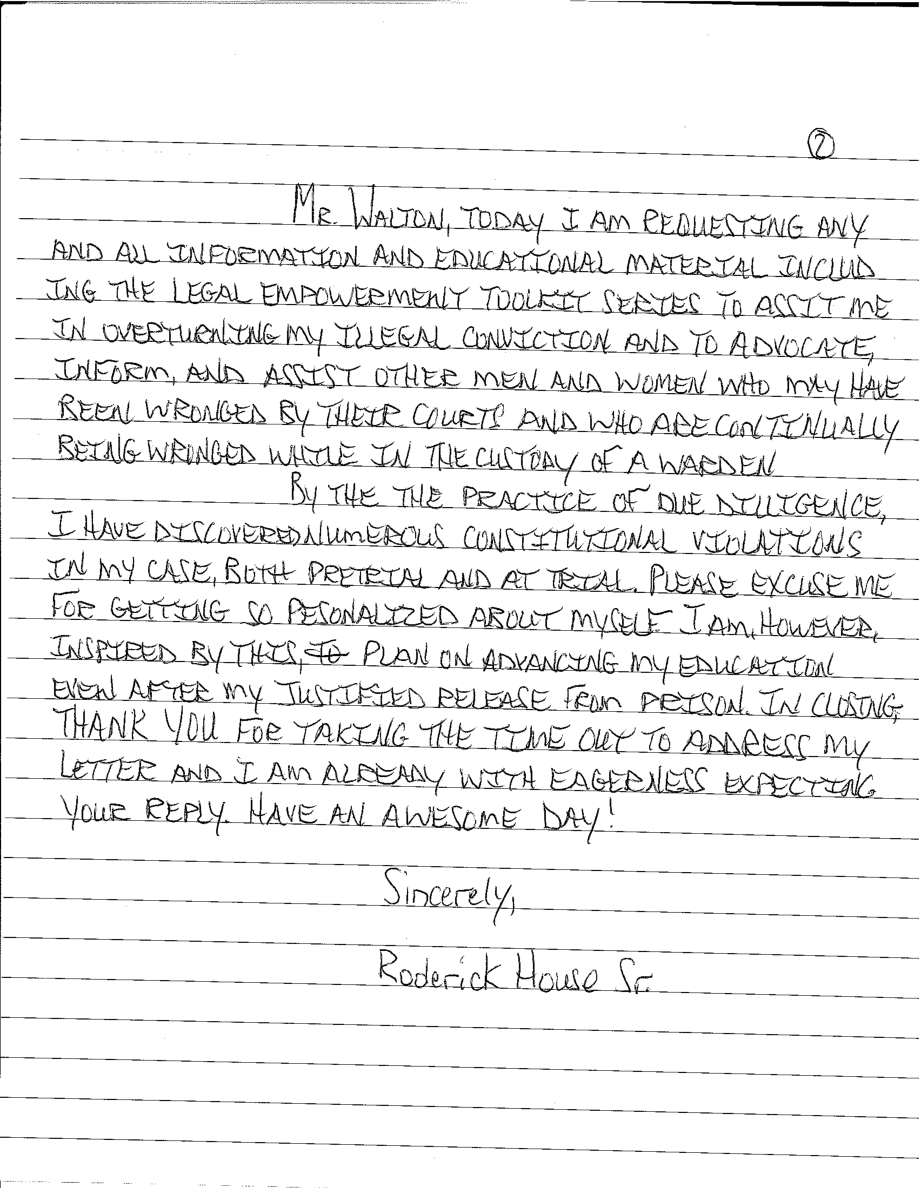 ②
MR. WALTON, TODAY I AM REQUESTING ANY
AND ALL INFORMATION AND EDUCATIONAL MATERIAL INCLUD
ING THE LEGAL EMPOWERMENT TOOLKIT SERIES TO ASSIT ME
IN OVERTURNING MY ILLEGAL CONVICTION AND TO ADVOCATE,
INFORM, AND ASSIST OTHER MEN AND WOMEN WHO MAY HAVE
BEEN WRONGED BY THEIR COURTS AND WHO ARE CONTINUALLY
BEING WRONGED WHILE IN THE CUSTODY OF A WARDEN
BY THE THE PRACTICE OF DUE DILLIGENCE,
I HAVE DISCOVERED NUMEROUS CONSTITUTIONAL VIOLATIONS
IN MY CASE, BOTH PRETRIAL AND AT TRIAL. PLEASE EXCUSE ME
FOR GETTING SO PESONALIZED ABOUT MYSELF I AM, HOWEVER,
INSPIRED BY THIS, TO PLAN ON ADVANCING MY EDUCATION
EVEN AFTER MY JUSTIFIED RELEASE FROM PRISON. IN CLOSING,
THANK YOU FOR TAKING THE TIME OUT TO ADDRESS MY
LETTER AND I AM ALREADY WITH EAGERNESS EXPECTING
YOUR REPLY. HAVE AN AWESOME DAY!
Sincerely,
Roderick House Sr.